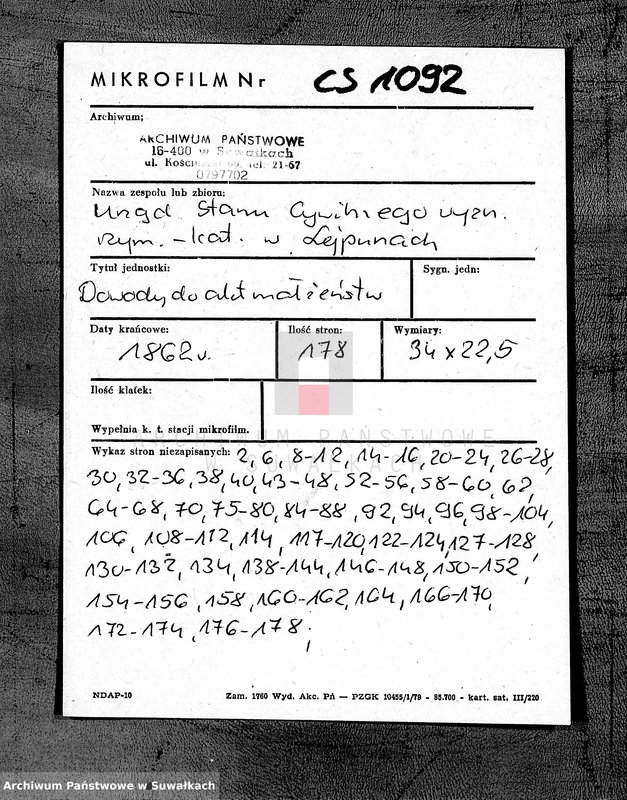 MIKROFILM Nr CS 1092
Archiwum;
ARCHIWUM PAŃSTWOWE
16-400 w Suwałkach
ul. Kościuszki 69, tel. 21-67
0797702
Nazwa zespołu lub zbioru:
Urząd Stanu Cywilnego wyzn.
rzym.-kat. w Lejpunach
Tytuł jednostki: Sygn. jedn:
Dowody do akt małżeństw
Daty krańcowe: Ilość stron: Wymiary:
1862 r. 178 34 x 22,5
Ilość klatek:
Wypełnia k. t. stacji mikrofilm.
ARCHIWUM PAŃSTWOWE
W SUWAŁKACH
Wykaz stron niezapisanych: 2, 6, 8-12, 14-16, 20-24, 26-28,
30, 32-36, 38, 40, 43-48, 52-56, 58-60, 62,
64-68, 70, 75-80, 84-88, 92, 94, 96, 98-104,
106, 108-112, 114, 117-120, 122-124, 127-128,
130-132, 134, 138-144, 146-148, 150-152,
154-156, 158, 160-162, 164, 166-170,
172-174, 176-178;
NDAP-10 Zam. 1760 Wyd. Akc. Pń — PZGK 10455/1/79 - 85.700 - kart. sat. III/220
Archiwum Państwowe w Suwałkach